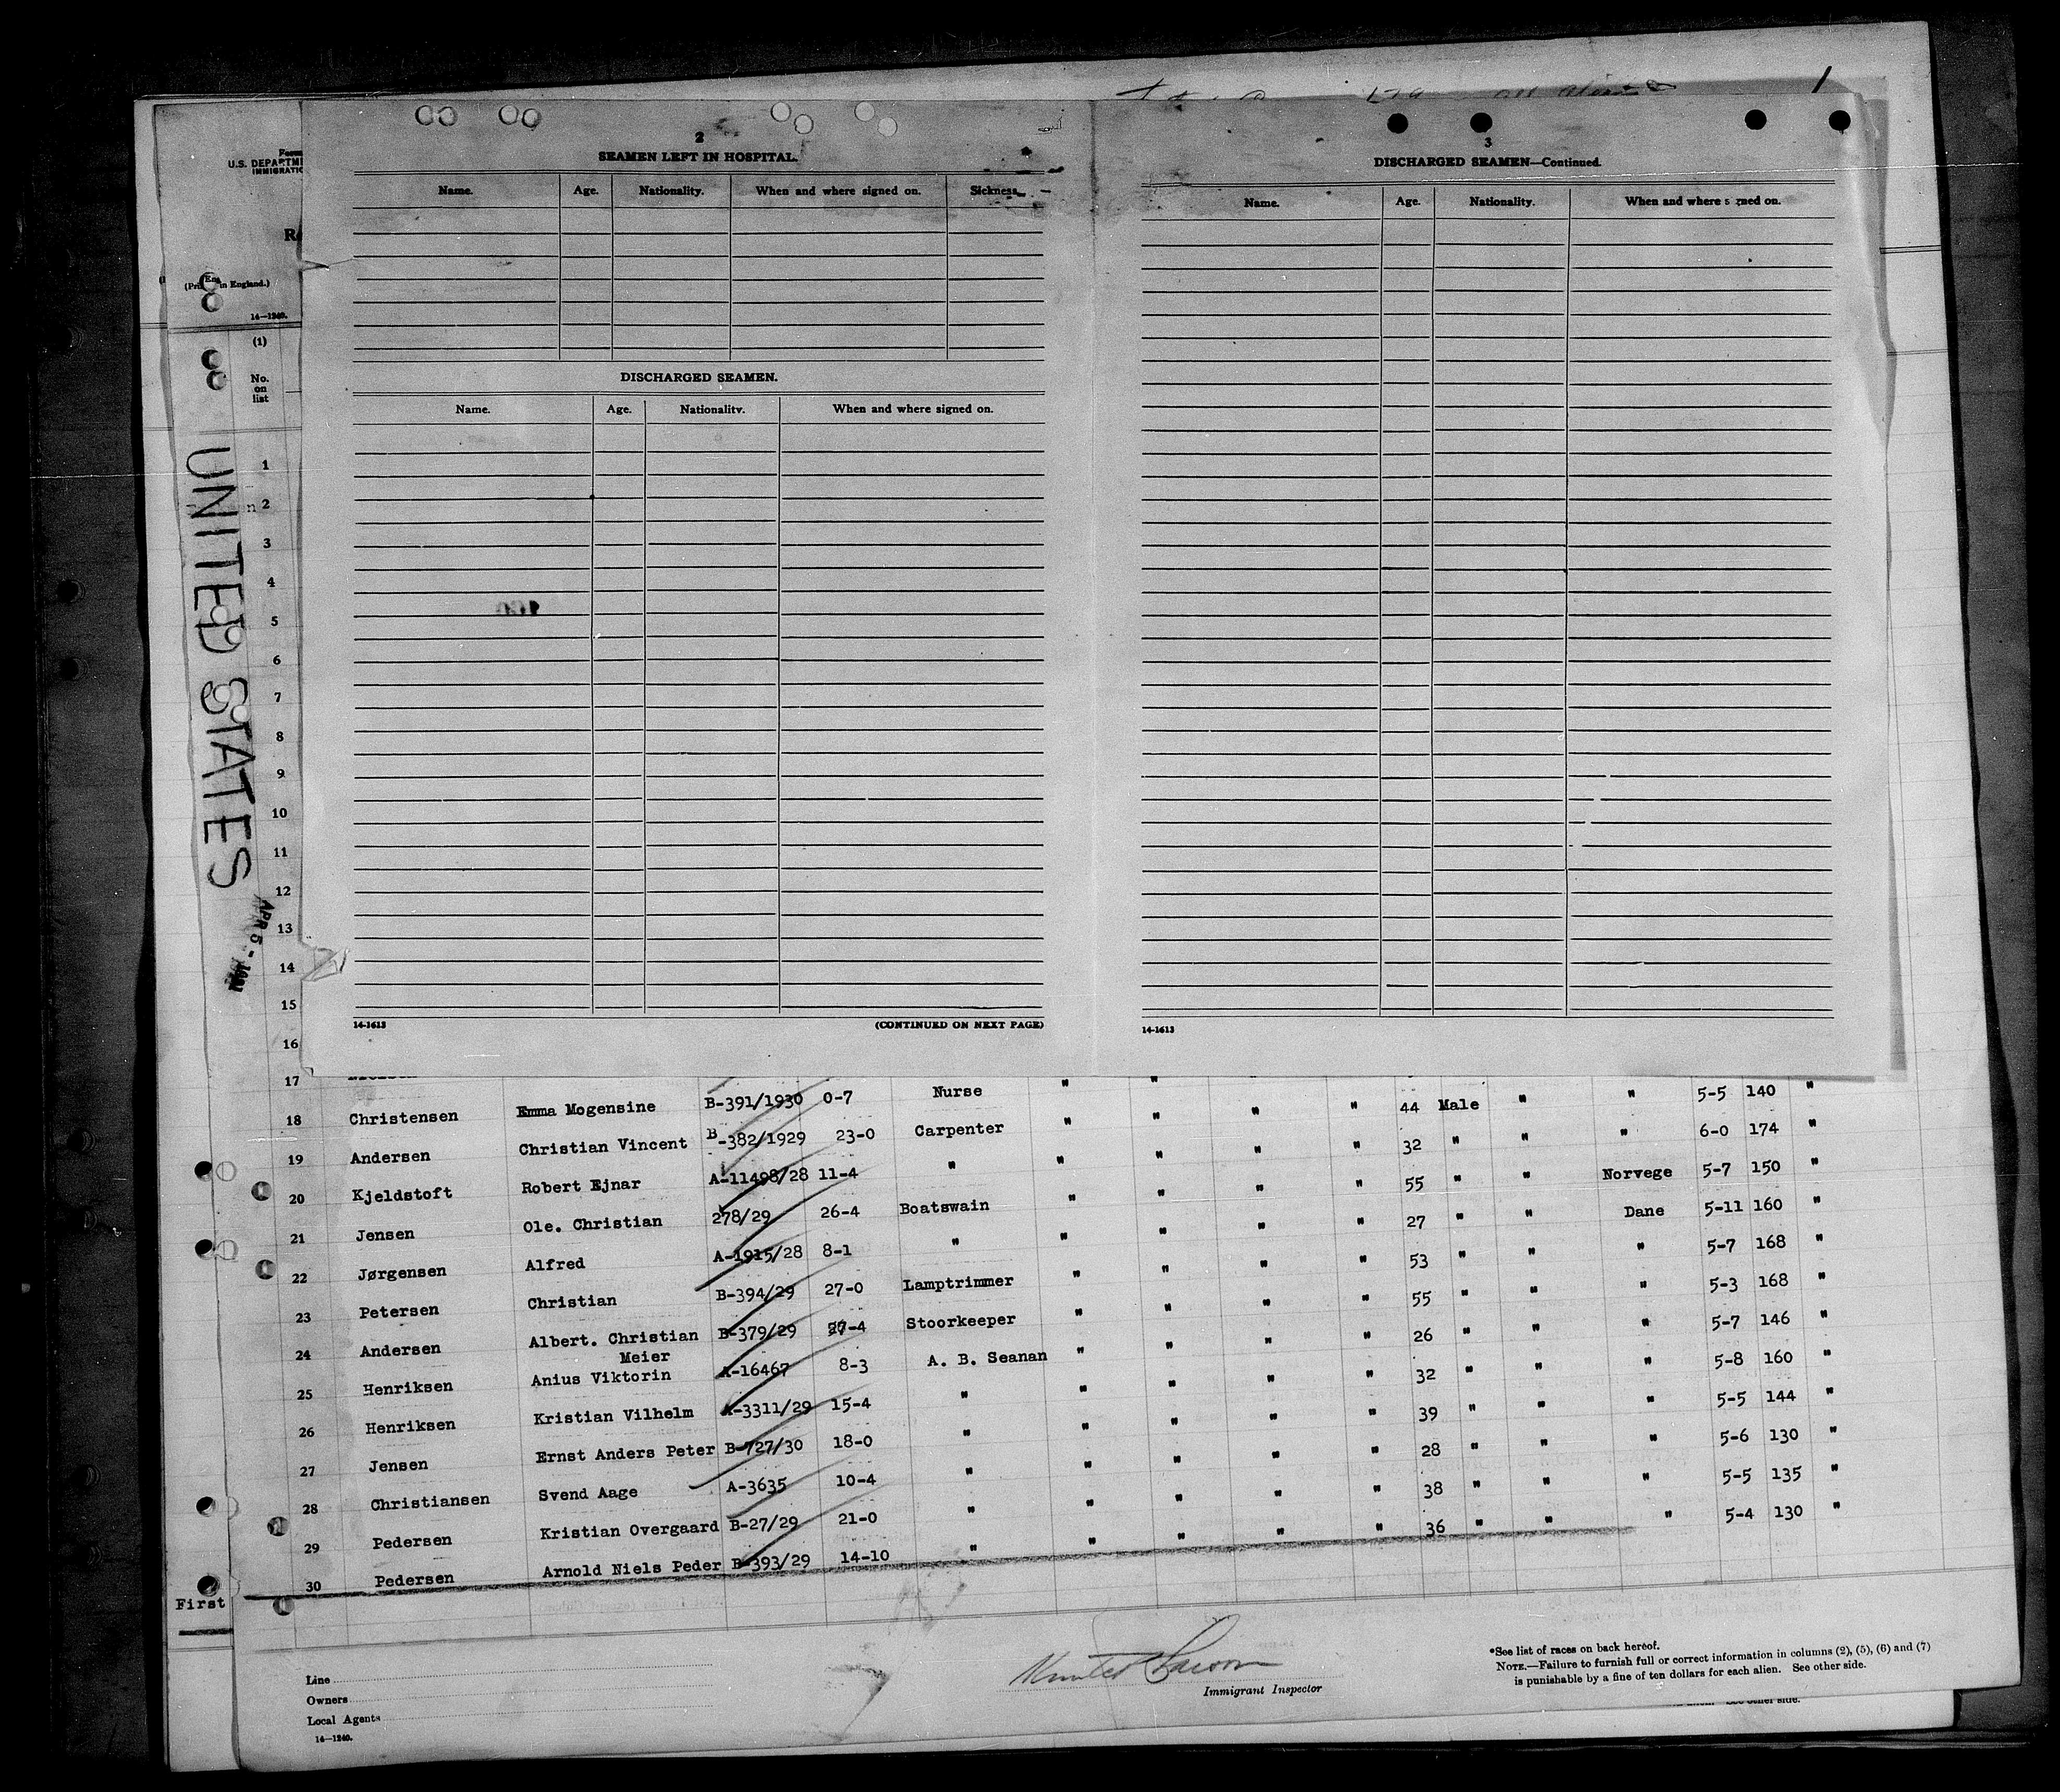 2
SEAMEN LEFT IN HOSPITAL.
Name. Age. Nationality. When and where signed on. Sickness
DISCHARGED SEAMEN.
Name. Age. Nationality. When and where signed on.
14-1613 (CONTINUED ON NEXT PAGE)
3
DISCHARGED SEAMEN—Continued.
Name. Age. Nationality. When and where s ned on.
14-1613
1
Form
U.S. DEPARTME
IMMIGRATIO
in England.)
14—1240.
(1)
No.
on
list
UNITED STATES
APR 5 -
1
2
3
4
5
6
7
8
9
10
11
12
13
14
15
16
17
18 Christensen Emma Mogensine B-391/1930 0-7 Nurse " "
19 Andersen Christian Vincent B-382/1929 23-0 Carpenter " " " " 44 Male " " 5-5 140 "
20 Kjeldstoft Robert Ejnar A-11498/28 11-4 " " " " " 32 " " " 6-0 174 "
21 Jensen Ole. Christian 278/29 26-4 Boatswain " " " " 55 " " Norvege 5-7 150 "
22 Jørgensen Alfred A-1915/28 8-1 " " " " " 27 " " Dane 5-11 160 "
23 Petersen Christian B-394/29 27-0 Lamptrimmer " " " " 53 " " " 5-7 168 "
24 Andersen Albert. Christian B-379/29 27-4 Stoorkeeper " " " " 55 " " " 5-3 168 "
Meier
25 Henriksen Anius Viktorin A-16467 8-3 A. B. Seanan " " " " 26 " " " 5-7 146 "
26 Henriksen Kristian Vilhelm A-3311/29 15-4 " " " " " 32 " " " 5-8 160 "
27 Jensen Ernst Anders Peter B-727/30 18-0 " " " " " 39 " " " 5-5 144 "
28 Christiansen Svend Aage A-3635 10-4 " " " " " 28 " " " 5-6 130 "
29 Pedersen Kristian Overgaard B-27/29 21-0 " " " " " 38 " " " 5-5 135 "
30 Pedersen Arnold Niels Peder B-393/29 14-10 " " " " " 36 " " " 5-4 130 "
First
Line
Owners
Local Agents
14—1240.
Immigrant Inspector
*See list of races on back hereof.
NOTE.—Failure to furnish full or correct information in columns (2), (5), (6) and (7)
is punishable by a fine of ten dollars for each alien. See other side.
See other side.